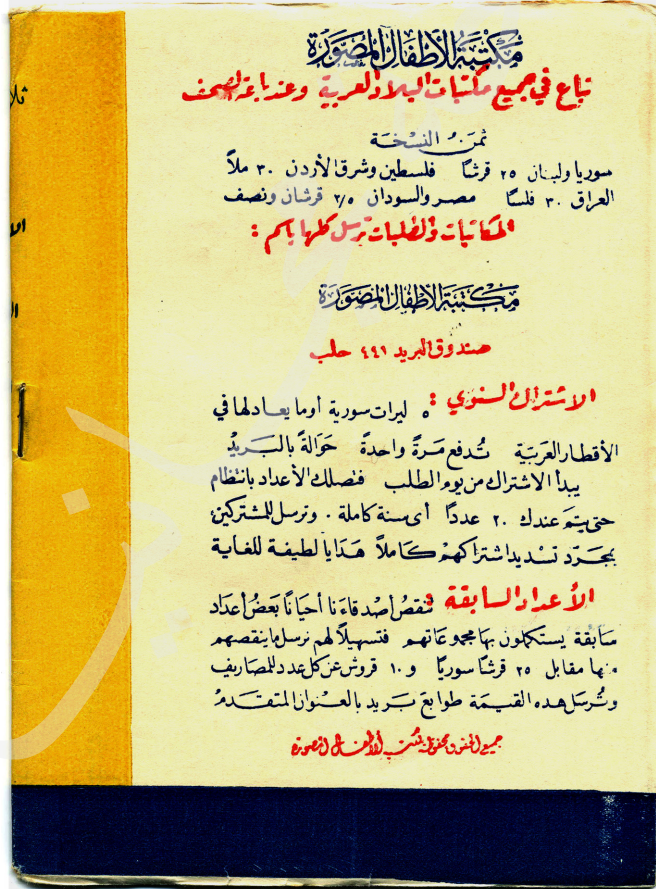 مكتبة الأطفال المصورة
تباع في جميع مكتبات البلاد العربية وعند باعة الصحف
ثمن النسخة
سوريا ولبنان ٢٥ قرشاً فلسطين وشرق الأردن ٣٠ ملاً
العراق ٣٠ فلساً مصر والسودان ٢/٥ قرشان ونصف
المكاتبات والطلبات ترسل كلها باسم :
مكتبة الأطفال المصورة
صندوق البريد ٤٤١ حلب
الاشتراك السنوي : ٥ ليرات سورية أو ما يعادلها في
الأقطار العربية تُدفع مرةً واحدةً حوالةً بالبريد
يبدأ الاشتراك من يوم الطلب فتصلك الأعداد بانتظام
حتى يتم عندك ٢٠ عدداً أى سنة كاملة . وترسل للمشتركين
بمجرّد تسديد اشتراكهم كاملاً هدايا لطيفة للغاية
الأعداد السابقة : تنقصُ أصدقاءَنا أحياناً بعضُ أعداد
سابقة يستكملون بها مجموعاتهم فتسهيلاً لهم نرسل ما ينقصهم
منها مقابل ٢٥ قرشاً سورياً و ١٠ قروش عن كل عدد للمصاريف
وتُرسل هذه القيمة طوابع بريد بالعنوان المتقدم
جميع الحقوق محفوظة لمكتبة الأطفال المصورة